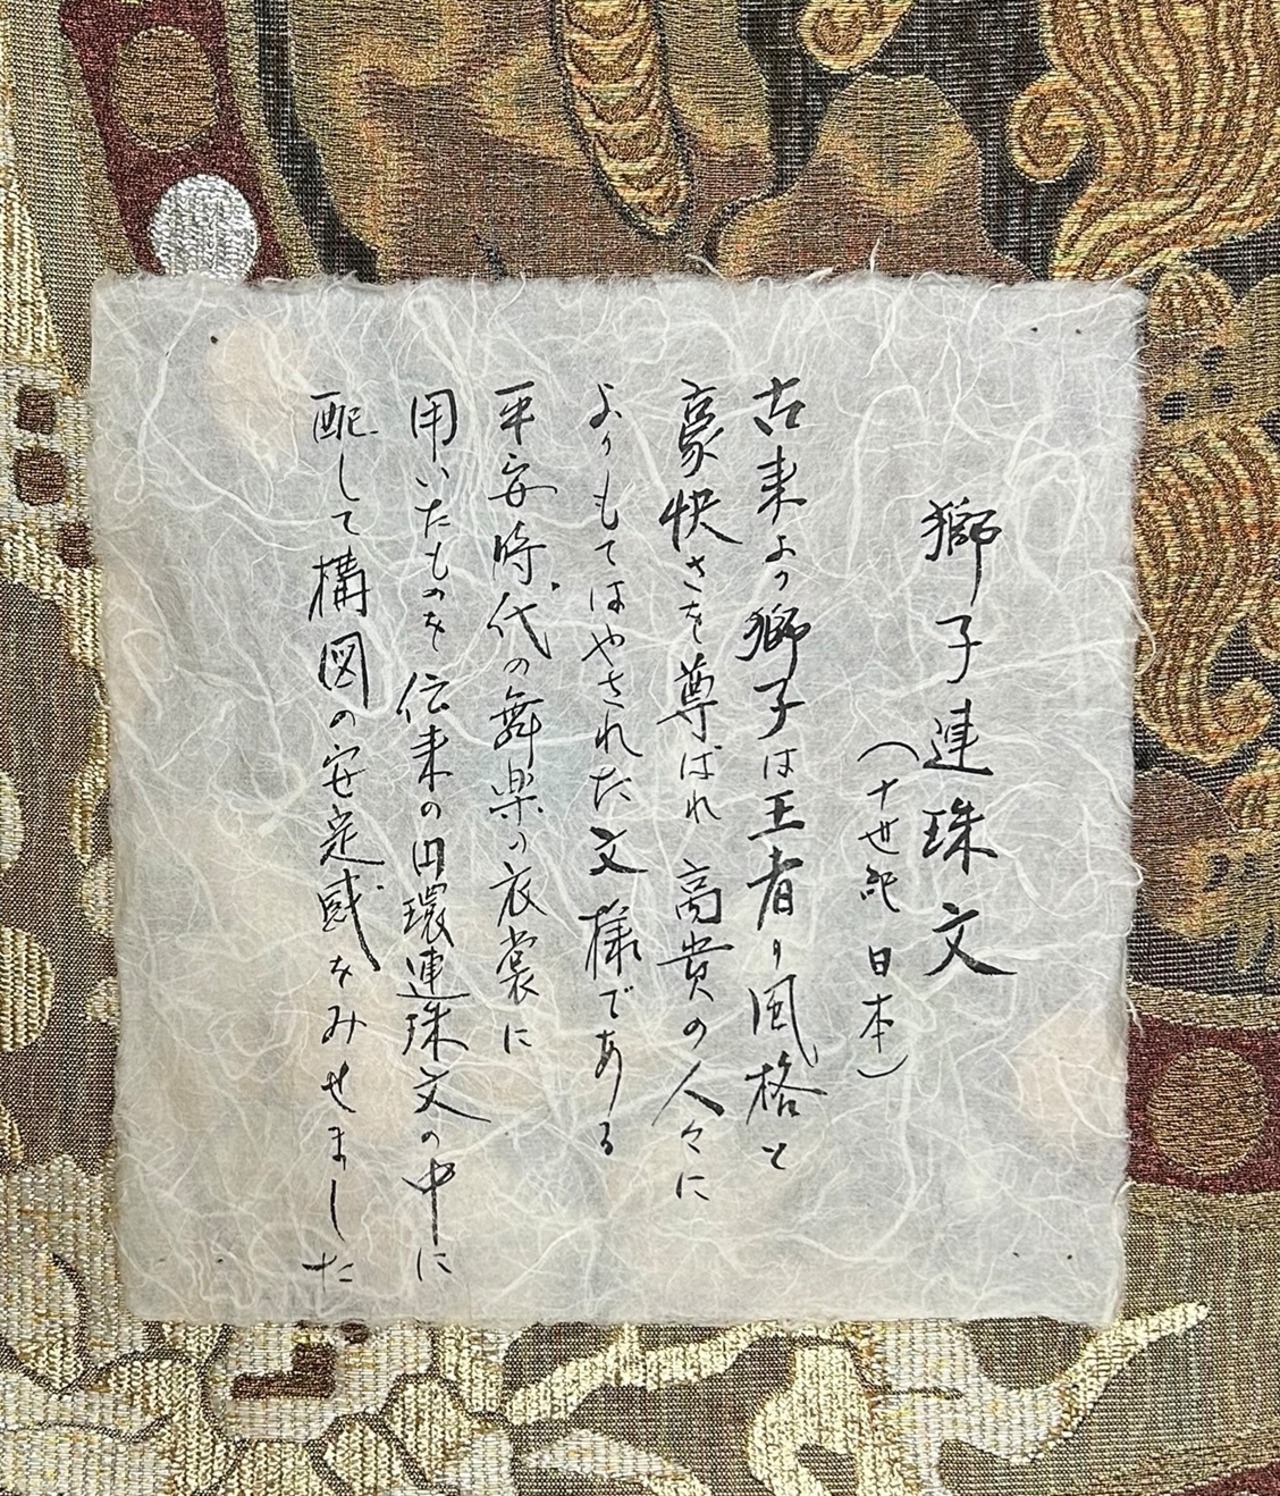 獅子連珠文
（十世紀 日本）
古来より獅子は王者の風格と
豪快さを尊ばれ高貴の人々に
よりもてはやされた文様である
平安時代の舞楽の衣裳に
用いたものを伝来の円環連珠文の中に
配して構図の安定感をみせました